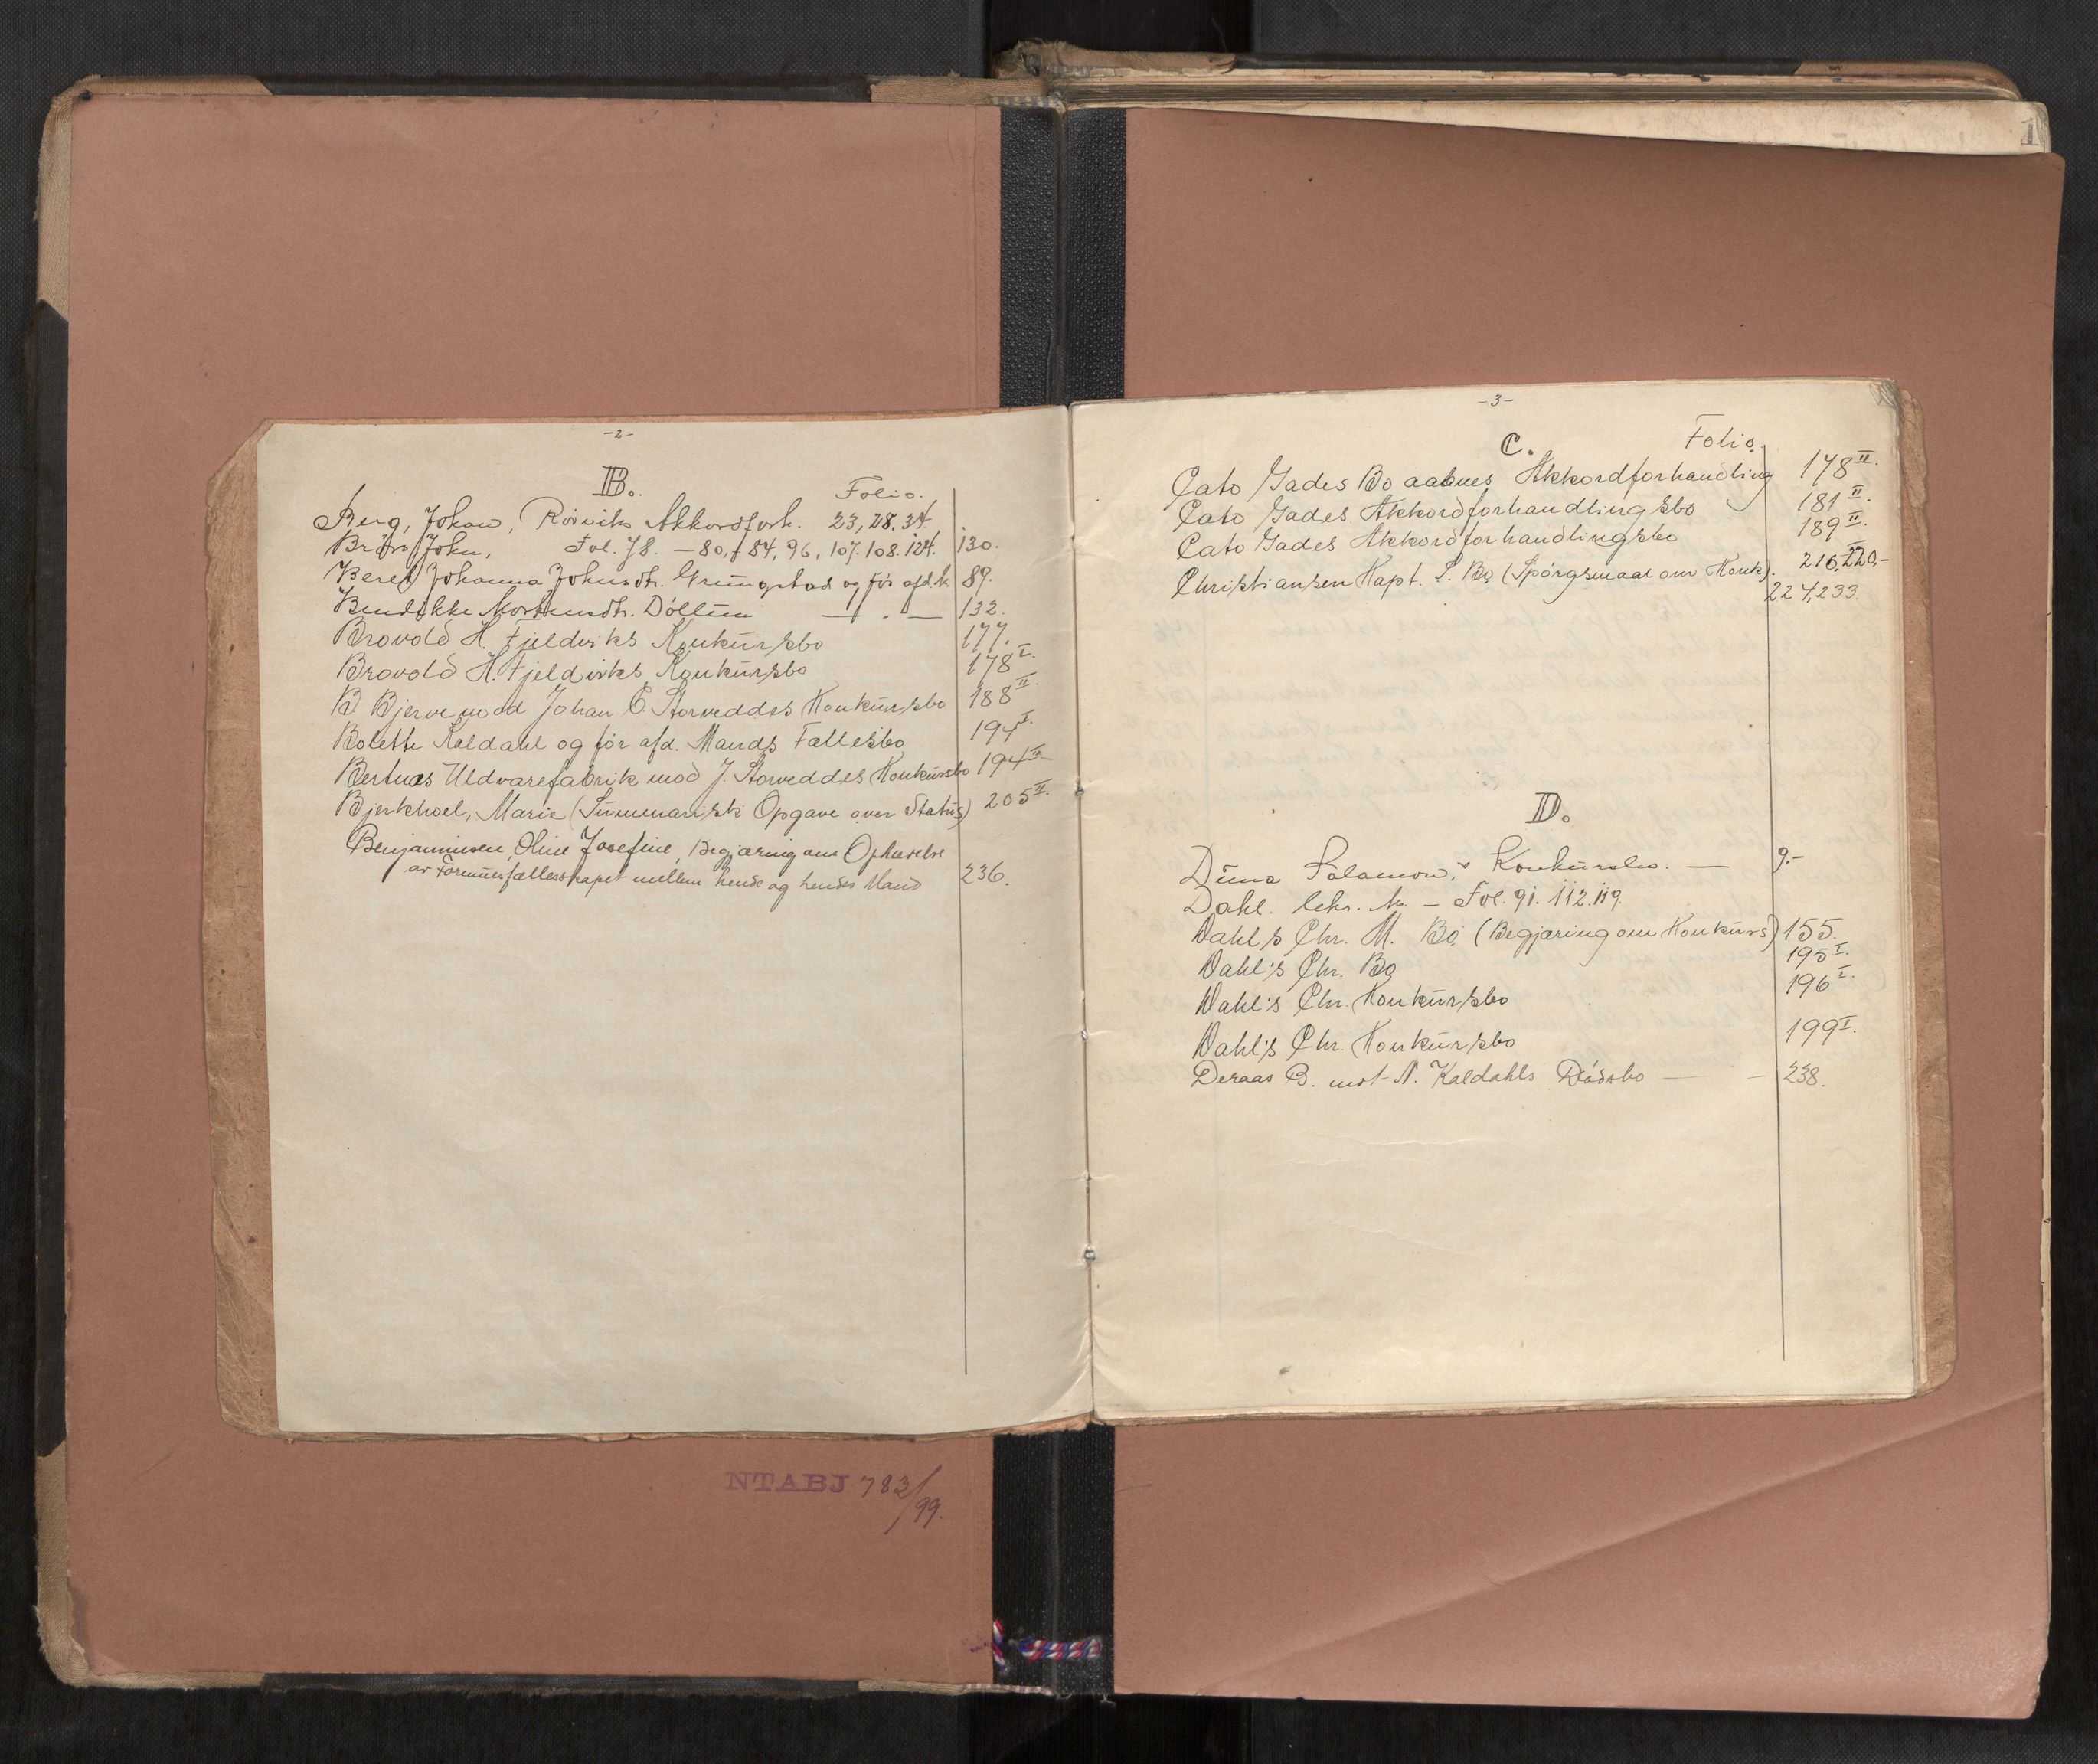 -2-
B. Folio.
Berg, Johan, Rörviks Akkordforh. 23, 28. 34.
Brörs John, Fol. 78. - 80, 84, 96, 107. 108. 124. 130.
Beret Johanna Johnsdtr. Grungstad og för afd. k 89.
Bendikke Mortensdtr. Döllum — . — 132.
Brovold H. Fjeldviks Konkursbo 177.
Brovold H. Fjeldviks Konkursbo 178 I.
B Bjerve mod Johan O Storveddes Konkursbo 188 II.
Bolette Kaldahl og for afd. Mands Fallesbo 194 I.
Bertnæs Uldvarefabrik mod J. Storveddes Konkursbo 194 II
Bjerkhoel, Marie (Summarisk Opgave over Status) 205 II.
Benjaminsen, Oline Josefine, Begjæring om Ophævelse
av Formuesfællesskapet mellem hende og hendes Mand 236.
NTABJ 783/99.
-3-
C. Folio.
Cato Gades Bo aabnes Akkordforhandling 178 II.
Cato Gades Akkordforhandlingsbo 181 II.
Cato Gades Akkordforhandlingsbo 189 II.
Christiansen Kapt. S. Bo (Spörgsmaal om Konk). 216, 220,-
224, 233.
D.
Duna Salamon, s Konkursbo. — 9.-
Dahl. Chr. M. - Fol. 91. 112. 119.
Dahl's Chr. M. Bo (Begjæring om Konkurs) 155.
Dahl's Chr. Bo 195 I.
Dahl's Chr. Konkursbo 196 I.
Dahl's Chr. Konkursbo 199 I.
Deraas B. mot N. Kaldahls Dödsbo — — 238.
1